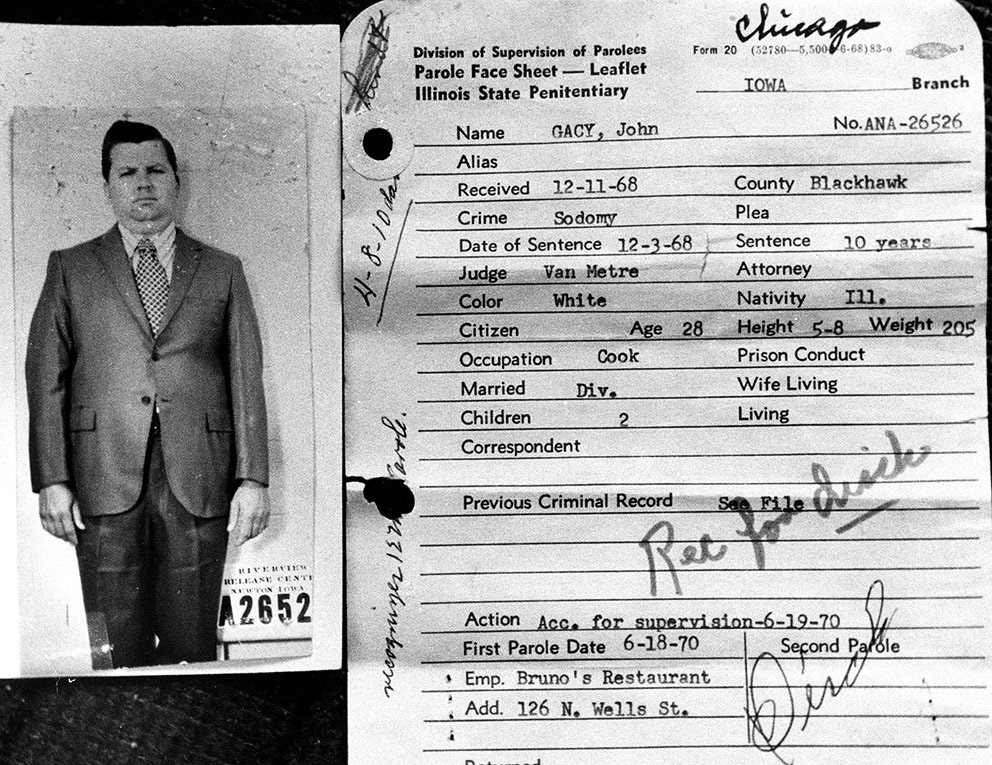 Chicago
Division of Supervision of Parolees
Form 20 (52780—5,500 6-68) 83-o
Parole Face Sheet — Leaflet
Illinois State Penitentiary
IOWA Branch
Name GACY, John No. ANA-26526
Alias
Received 12-11-68 County Blackhawk
Crime Sodomy Plea
Date of Sentence 12-3-68 Sentence 10 years
Judge Van Metre Attorney
Color White Nativity Ill.
Citizen Age 28 Height 5-8 Weight 205
Occupation Cook Prison Conduct
Married Div. Wife Living
Children 2 Living
Correspondent
Previous Criminal Record See File
Rec for disch
Action Acc. for supervision-6-19-70
First Parole Date 6-18-70 Second Parole
Emp. Bruno's Restaurant
Add. 126 N. Wells St.
Returned
4-8-10 da
Parole.
RIVERVIEW
RELEASE CENT
NEWTON IOWA
A2652